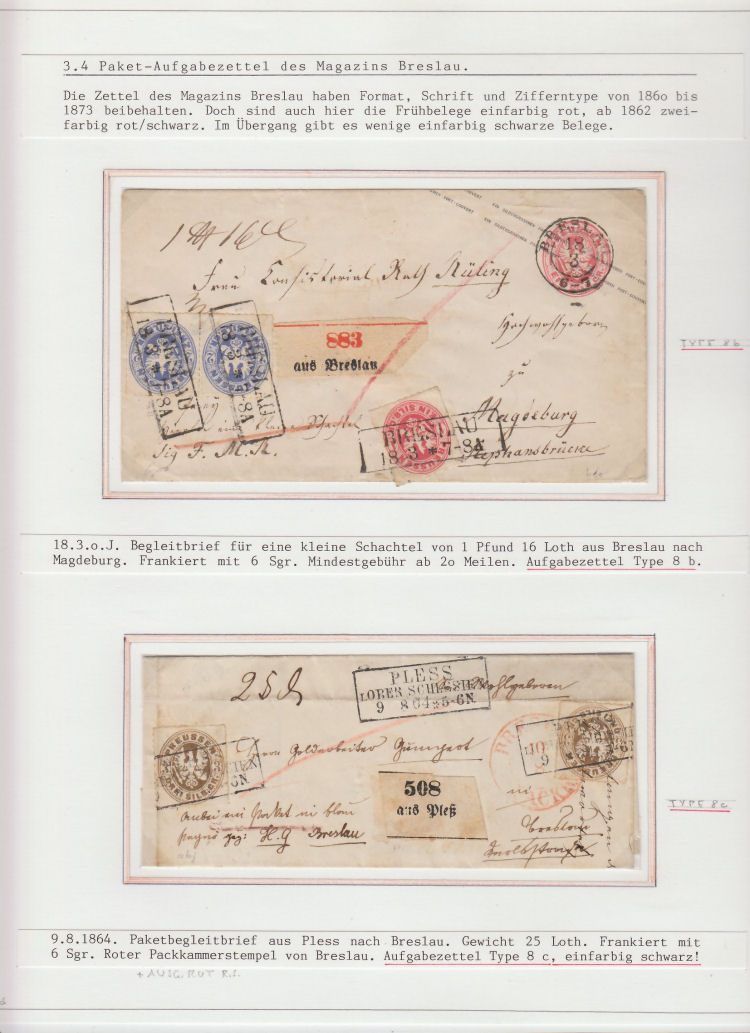 3.4 Paket-Aufgabezettel des Magazins Breslau.
Die Zettel des Magazins Breslau haben Format, Schrift und Zifferntype von 186o bis
1873 beibehalten. Doch sind auch hier die Frühbelege einfarbig rot, ab 1862 zwei-
farbig rot/schwarz. Im Übergang gibt es wenige einfarbig schwarze Belege.
BRESLAU
18
3
6-7
Frau Consistorial Rath Rüling
Hochwohlgeboren
zu
Magdeburg
Stephansbrücke
BRESLAU
BRESLAU
883
aus Breslau
Sig F. M. R.
BRESLAU
18 3 * 7-8A
TYPE 8b
18.3.o.J. Begleitbrief für eine kleine Schachtel von 1 Pfund 16 Loth aus Breslau nach
Magdeburg. Frankiert mit 6 Sgr. Mindestgebühr ab 2o Meilen. Aufgabezettel Type 8 b.
PLESS
IOBER SCHLESIEN
9 8 64 * 5-6N.
Wohlgeboren
PREUSSEN
Herrn Goldarbeiter Gumpert
508
aus Pleß
in
Breslau
Anbei ein Packet in blau
gez: H.G Breslau
TYPE 8c
9.8.1864. Paketbegleitbrief aus Pless nach Breslau. Gewicht 25 Loth. Frankiert mit
6 Sgr. Roter Packkammerstempel von Breslau. Aufgabezettel Type 8 c, einfarbig schwarz!
+ AUSG. ROT R.S.